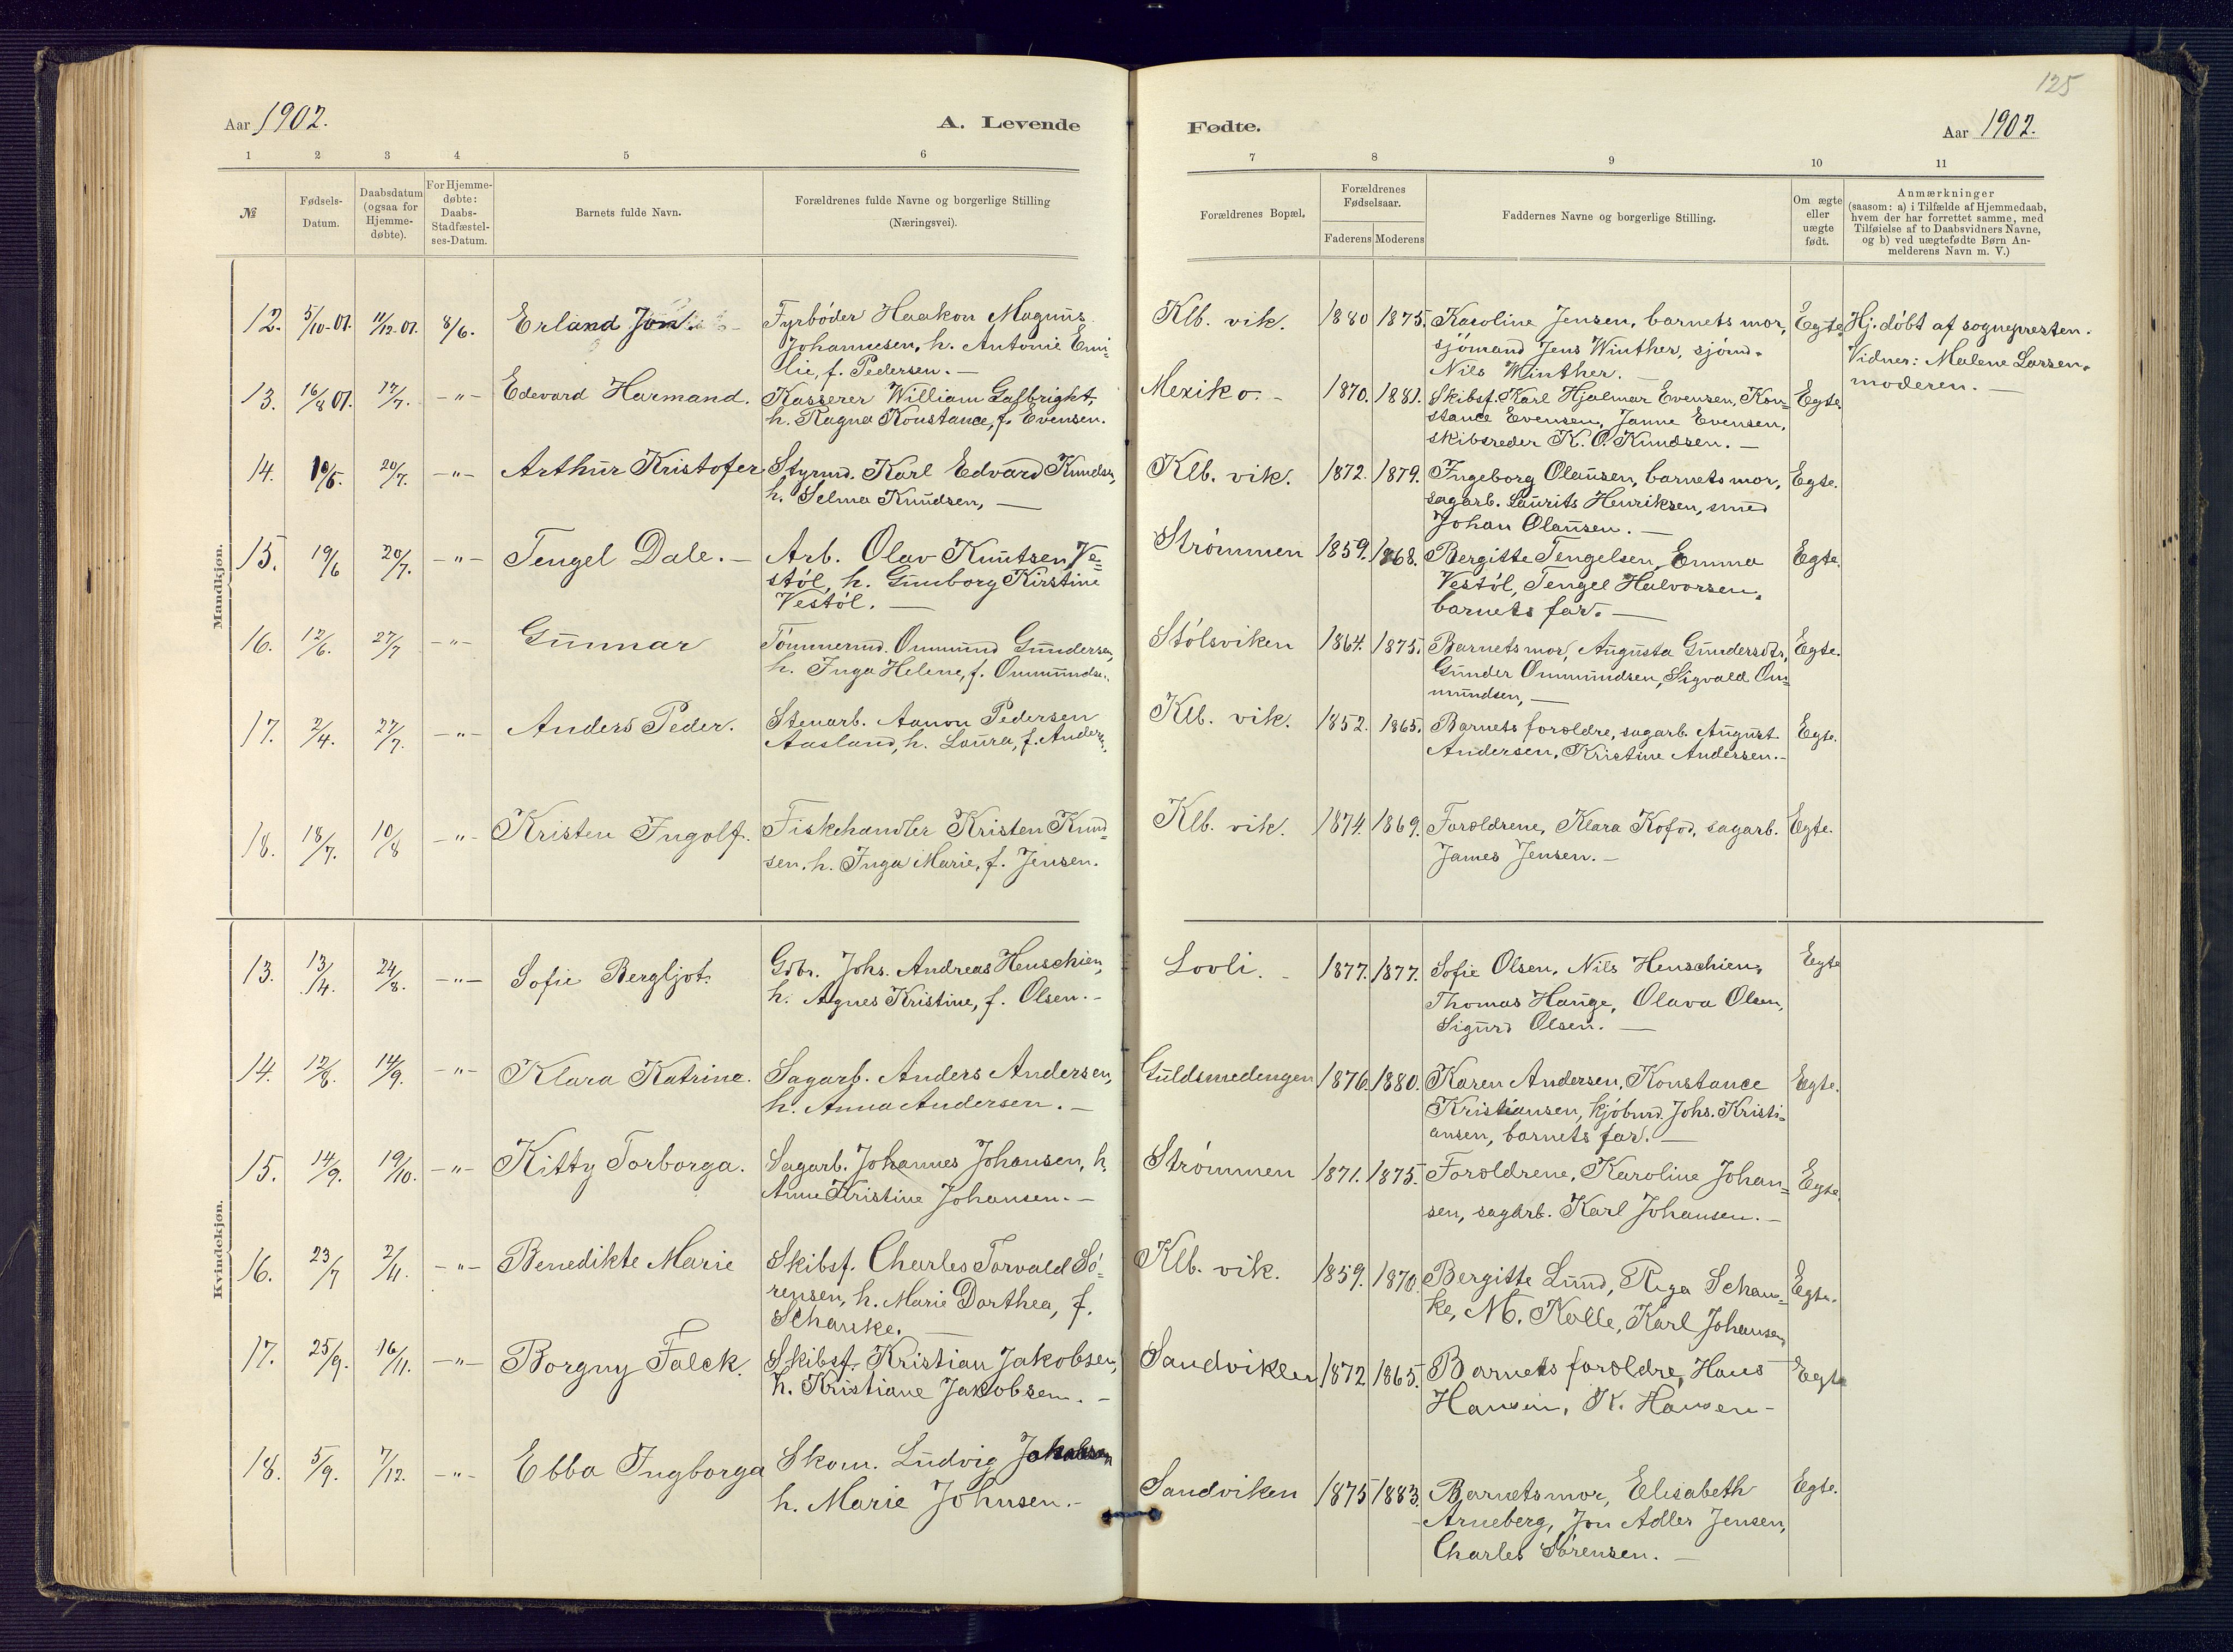 125
Aar 1902. A. Levende Fødte. Aar 1902.
1 2 3 4 5 6 7 8 9 10 11
№
Fødsels-
Datum.
Daabsdatum
(ogsaa for
Hjemme-
døbte).
For Hjemme-
døbte:
Daabs-
Stadfæstel-
ses-Datum.
Barnets fulde Navn.
Forældrenes fulde Navne og borgerlige Stilling
(Næringsvei).
Forældrenes Bopæl.
Forældrenes
Fødselsaar.
Faderens Moderens
Faddernes Navne og borgerlige Stilling.
Om ægte
eller
uægte
født.
Anmærkninger
(saasom: a) i Tilfælde af Hjemmedaab,
hvem der har forrettet samme, med
Tilføielse af to Daabsvidners Navne,
og b) ved uægtefødte Børn An-
melderens Navn m. V.)
Mandkjøn.
12. 5/10-01. 11/12-01. 8/6. Erland Jon
Fyrbøder Haakon Magnus
Johannesen, h. Antonie Emi-
lie, f. Pedersen. —
Klb. vik. 1880 1875.
Karoline Jensen, barnets mor,
sjømand Jens Winther, sjømd.
Nils Winther. —
Egte.
Hj. døbt af sognepresten.
Vidner: Malene Larsen,
moderen. —
13. 16/8 01. 17/7. -"- Edevard Harmand.
Kasserer William Galbright,
h. Ragna Konstance, f. Evensen.
Mexiko. - 1870. 1881.
Skibsf. Karl Hjalmar Evensen, Kon-
stance Evensen, Janne Evensen,
skibsreder K. O. Knudsen. —
Egte.
14. 10/5. 20/7. -"- Arthur Kristofer
Styrmd. Karl Edvard Knudsen,
h. Selma Knudsen, —
Klb. vik. 1872. 1879.
Ingeborg Olausen, barnets mor,
sagarb. Laurits Henriksen, smed
Johan Olausen. —
Egte.
15. 19/6 20/7. -"- Tengel Dale. —
Arb. Olav Knutsen Ve-
støl, h. Gunborg Kirstine
Vestøl. —
Strømmen 1859. 1868.
Bergitte Tengelsen, Emma
Vestøl, Tengel Halvorsen,
barnets far. —
Egte.
16. 12/6. 27/7 -"- Gunnar
Tømmermd. Ommund Gundersen,
h. Inga Helene, f. Ommundsen.
Stølsviken 1864. 1875.
Barnets mor, Augusta Gundersdtr,
Gunder Ommundsen, Sigvald Om-
mundsen, —
Egte.
17. 2/4. 27/7. -"- Anders Peder.
Stenarb. Aanon Pedersen
Aasland, h. Laura, f. Anders.
Klb. vik. 1852. 1865.
Barnets forældre, sagarb. August
Andersen, Kristine Andersen. -
Egte.
18. 18/7. 10/8 -"- Kristen Ingolf.
Fiskehandler Kristen Knud-
sen, h. Inga Marie, f. Jensen.
Klb. vik. 1874. 1869.
Forældrene, Klara Kofod, sagarb.
James Jensen. —
Egte.
Kvindekjøn.
13. 13/4. 24/8. -"- Sofie Bergljot.
Gdbr. Johs. Andreas Henschien,
h. Agnes Kristine, f. Olsen. -
Lovli. - 1877. 1877.
Sofie Olsen, Nils Henschien,
Thomas Hauge, Olava Olsen,
Sigurd Olsen. —
Egte
14. 12/8. 14/9. -"- Klara Katrine.
Sagarb. Anders Andersen,
h. Anna Andersen. —
Guldsmedengen 1876. 1880.
Karen Andersen, Konstance
Kristiansen, kjøbmd. Johs. Kristi-
ansen, barnets far. —
Egte.
15. 14/9. 19/10. -"- Kitty Torborga.
Sagarb. Johannes Johansen, h.
Anne Kristine Johansen. —
Strømmen 1871. 1875.
Forældrene, Karoline Johan-
sen, sagarb. Karl Johansen. —
Egte.
16. 23/7 2/11. -"- Benedikte Marie
Skibsf. Charles Torvald Sø-
rensen, h. Marie Dorthea, f.
Schanke. —
Klb. vik. 1859. 1870.
Bergitte Lund, Raga Schan-
ke, M. Kolle, Karl Johansen,
Egte.
17. 25/9. 16/11. -"- Borgny Falck.
Skibsf. Kristian Jakobsen,
h. Kristiane Jakobsen. -
Sandviken 1872 1865.
Barnets forældre, Hans
Hansen, K. Hansen -
Egte
18. 5/9. 7/12. -"- Ebba Ingborga
Skom. Ludvig
h. Marie Johnsen. -
Sandviken 1875 1883.
Barnets mor, Elisabeth
Arneberg, Jon Adler Jensen,
Charles Sørensen. —
Egte.